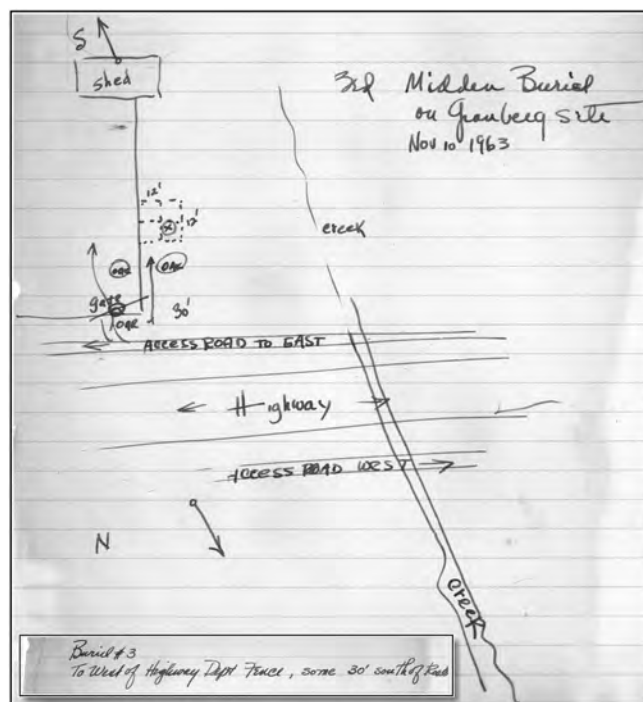 S
Shed
3rd Midden Burial
on Granberg Site
Nov 10 1963
12'
12'
X
creek
OAK
OAK
gate
OAK
30'
ACCESS ROAD TO EAST
Highway
ACCESS ROAD WEST
N
creek
Burial #3
To West of Highway Dept Fence, some 30' south of Road